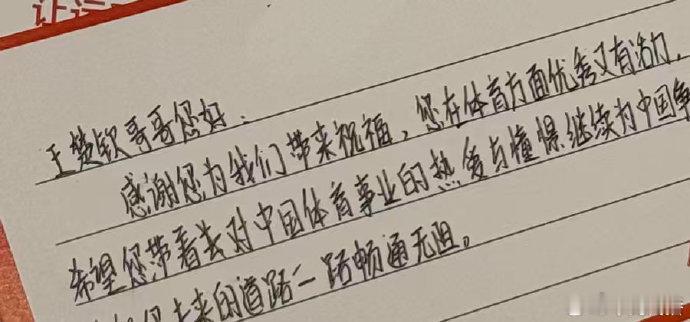 让运
王楚钦哥哥您好:
感谢您为我们带来祝福,您在体育方面优秀又有活力,
希望您带着去对中国体育事业的热爱与憧憬继续为中国争
您未来的道路一路畅通无阻。